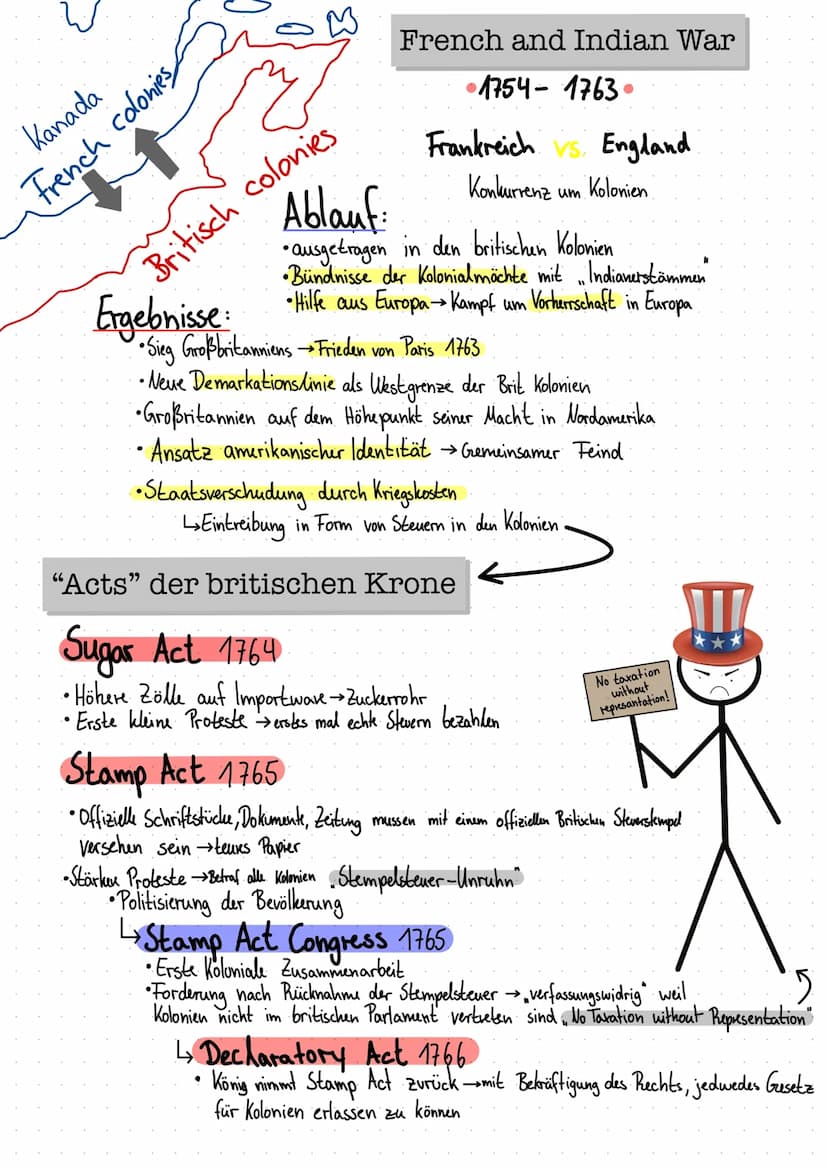 French and Indian War
1754 - 1763
Kanada
French colonies
Britisch colonies
Frankreich vs. England
Konkurrenz um Kolonien
Ablauf:
• ausgetragen in den britischen Kolonien
• Bündnisse der Kolonialmächte mit „Indianerstämmen"
• Hilfe aus Europa → Kampf um Vorherrschaft in Europa
Ergebnisse:
• Sieg Großbritanniens → Frieden von Paris 1763
• Neue Demarkationslinie als Westgrenze der Brit Kolonien
• Großritannien auf dem Höhepunkt seiner Macht in Nordamerika
• Ansatz amerikanischer Identität → Gemeinsamer Feind
• Staatsverschudung durch Kriegskosten
↳ Eintreibung in Form von Steuern in den Kolonien
“Acts” der britischen Krone
Sugar Act 1764
• Höhere Zölle auf Importware → Zuckerrohr
• Erste kleine Proteste → erstes mal echte Steuern bezahlen
No taxation
without
represantation!
Stamp Act 1765
• Offizielle Schriftstücke, Dokumente, Zeitung mussen mit einem offiziellen Britischen Steuerstempel
versehen sein → teures Papier
• Stärkere Proteste → Betraf alle Kolonien „Stempelsteuer-Unruhn"
• Politisierung der Bevölkerung
↳ Stamp Act Congress 1765
• Erste Koloniale Zusammenarbeit
• Forderung nach Rücknahme der Stempelsteuer → „verfassungswidrig" weil
Kolonien nicht im britischen Parlament vertreten sind „No Taxation without Representation"
↳ Declaratory Act 1766
• König nimmt Stamp Act zurück → mit Bekräftigung des Rechts, jedwedes Gesetz
für Kolonien erlassen zu können